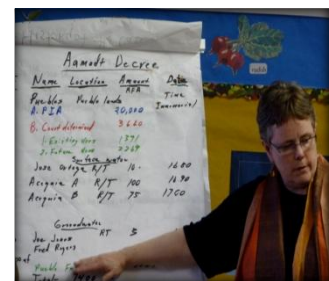 Aamodt Decree
Name Location Amount Date
AFR
Pueblos Pueblo lands Time
A. PIA 20,000 Immemorial
B. Court determined 3660
1. Existing uses 1391
2. Future uses 2269
Surface water
Jose Ortega R/T 16 1600
Acequia A R/T 100 1690
Acequia B R/T 75 1750
Groundwater
Joe Jones RT 3
Fred Rogers